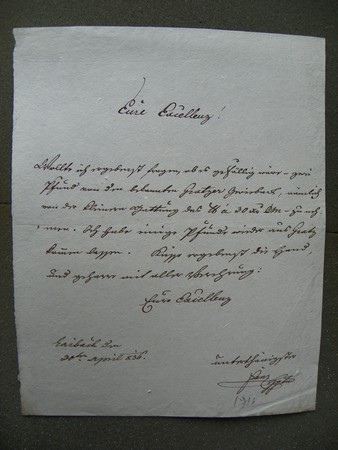 Eure Excellenz!
Wollte ich ergebenst fragen, ob es gefällig wäre - zwei
Pfund von den bekannten Gratzer Zwieback, nämlich
von der kleinern Gattung das ℔ à 30 xr zu neh
men. Ich habe einige Pfunde wieder aus Gratz
kommen lassen. Küsse ergebenst die Hand,
und geharre mit aller Verehrung:
Eure Excellenz
Laibach den
20ten April 836.
unterthänigster
1911